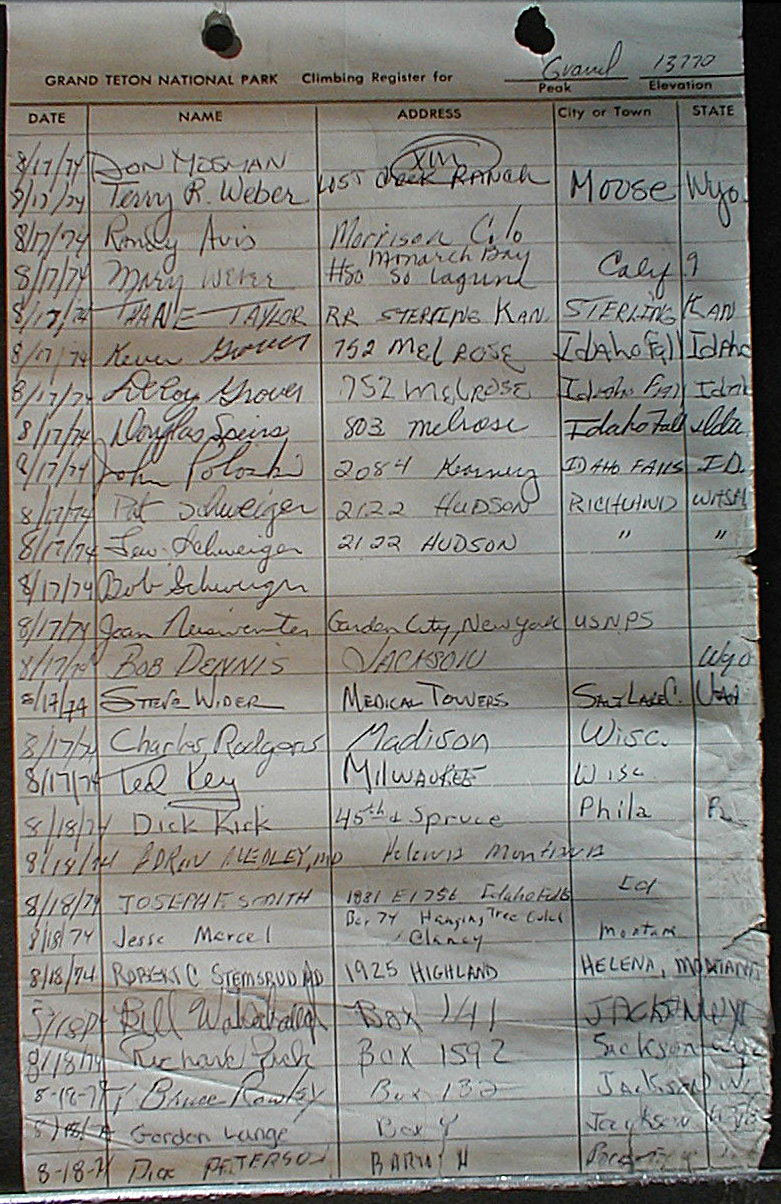 Grand 13770
GRAND TETON NATIONAL PARK Climbing Register for Peak Elevation
DATE NAME ADDRESS City or Town STATE
8/17/74 DON MOSMAN
8/17/74 Terry R. Weber LOST Creek RANCH Moose Wyo.
8/17/74 Randy Avis Morrison Colo
Monarch Bay
8/17/74 Mary Weber #50 So Laguna Calif 9
8/17/74 THANE TAYLOR RR STERLING KAN. STERLING KAN
8/17/74 Kevin Grover 752 MELROSE Idaho Fall Idaho
8/17/74 DeLoy Grover 752 MELROSE Idaho Fall Idah
8/17/74 Douglas Speirs 803 melrose Idaho Falls Ida.
8/17/74 John 2084 Kearney IDAHO FALLS ID.
8/17/74 Pat Schweiger 2122 HUDSON RICHLAND WASH
8/17/74 Lew Schweiger 2122 HUDSON " "
8/17/74 Bob Schweiger
8/17/74 Joan Garden City, New York USNPS
8/17/74 BOB DENNIS JACKSON Wyo
8/17/74 STEVE WIDER MEDICAL TOWERS SALT LAKE C. UTAH
8/17/74 Charles Rodgers Madison Wisc.
8/17/74 Ted Key MILWAUKEE Wisc
8/18/74 Dick Kirk 45th & Spruce Phila
8/18/74 MEDLEY, MD Helena Montana
8/18/74 JOSEPH F SMITH 1881 E 1756 Idaho Falls Id
Box 74 Hanging Tree Gulch
8/18/74 Jesse Marcel Clancy Montana
8/18/74 ROBERT C STEMSRUD MD 1925 HIGHLAND HELENA, MONTANA
Bill Box 141 JACKSON WY
8/18/74 Richard Box 1592 Jackson Wyo
8-18-74 Bruce Rowley Box 132 Jackson
Gordon Lange Box Y Jackson Wyo
8-18-74 Dick PETERSON